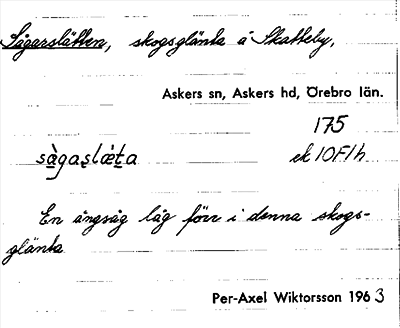 Sågarslätten, skogsglänta å Skatteby,
Askers sn, Askers hd, Örebro län.
175
sàgaṣlǽṯa ek 10F1h
En ångsåg låg förr i denna skogs-
glänta
Per-Axel Wiktorsson 1963